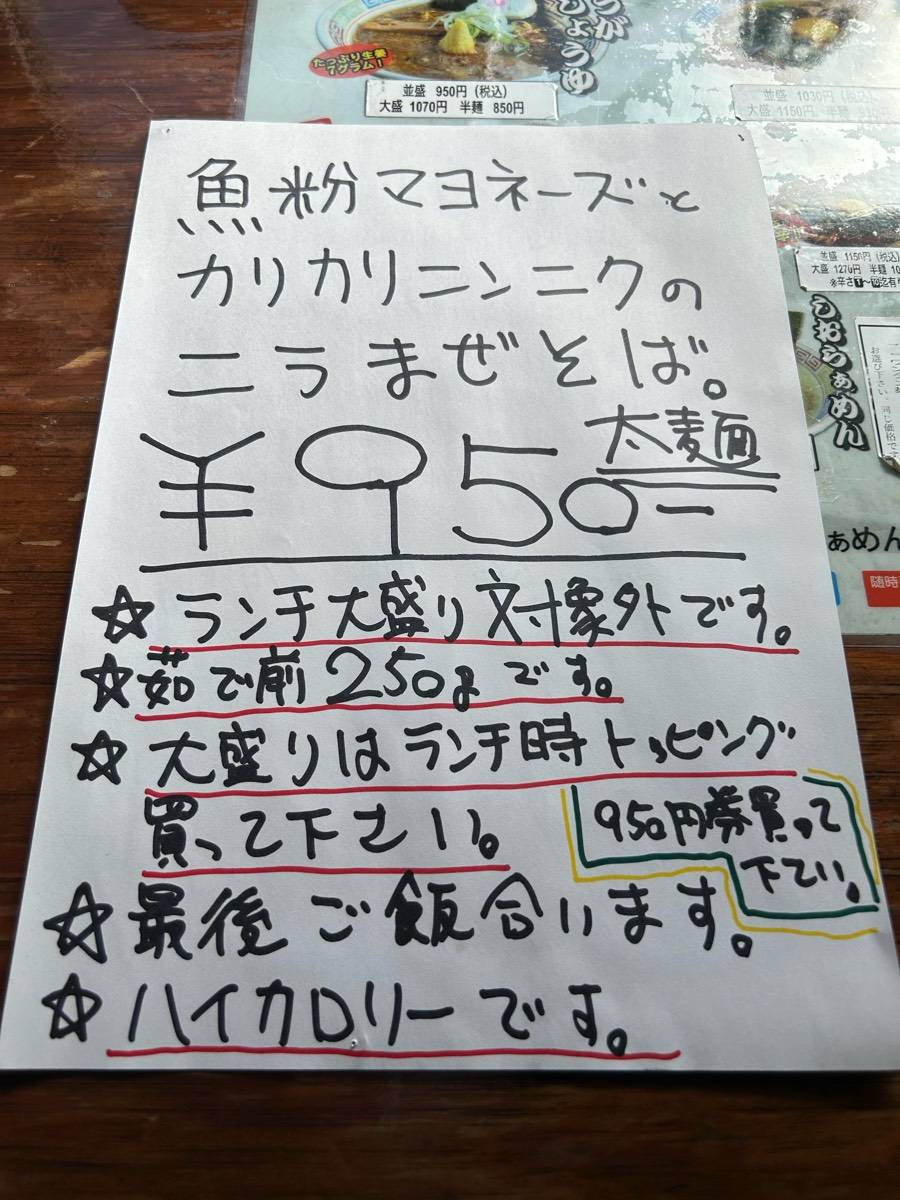 たっぷり生姜
7グラム!
しょうゆ
並盛 950円(税込)
大盛 1070円 半麺 850円
並盛 1030円(税込)
大盛 1150円 半麺
並盛 1150円(税込)
大盛 1270円 半麺
しおらぁめん
ぁめん
随時
魚粉マヨネーズと
カリカリニンニクの
ニラまぜそば。
太麺
¥950ー
☆ランチ大盛り対象外です。
☆茹で前250gです。
☆大盛りはランチ時トッピング
買って下さい。
950円券買って
下てい。
☆最後ご飯合います。
☆ハイカロリーです。